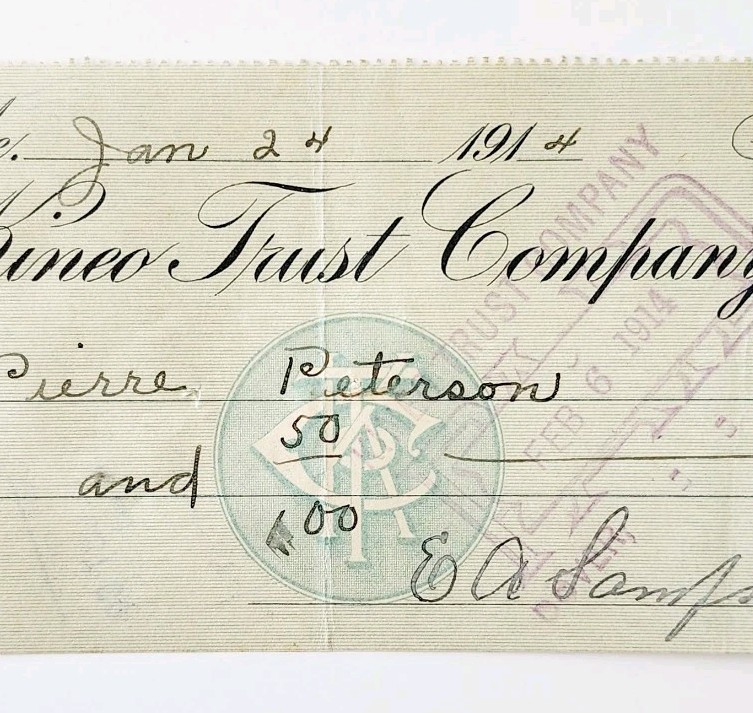 Jan 24 1914
Kineo Trust Company
Pierre Peterson
and 50
100
E A Samps
TRUST COMPANY
PAID
FEB 6 1914
DOVER,